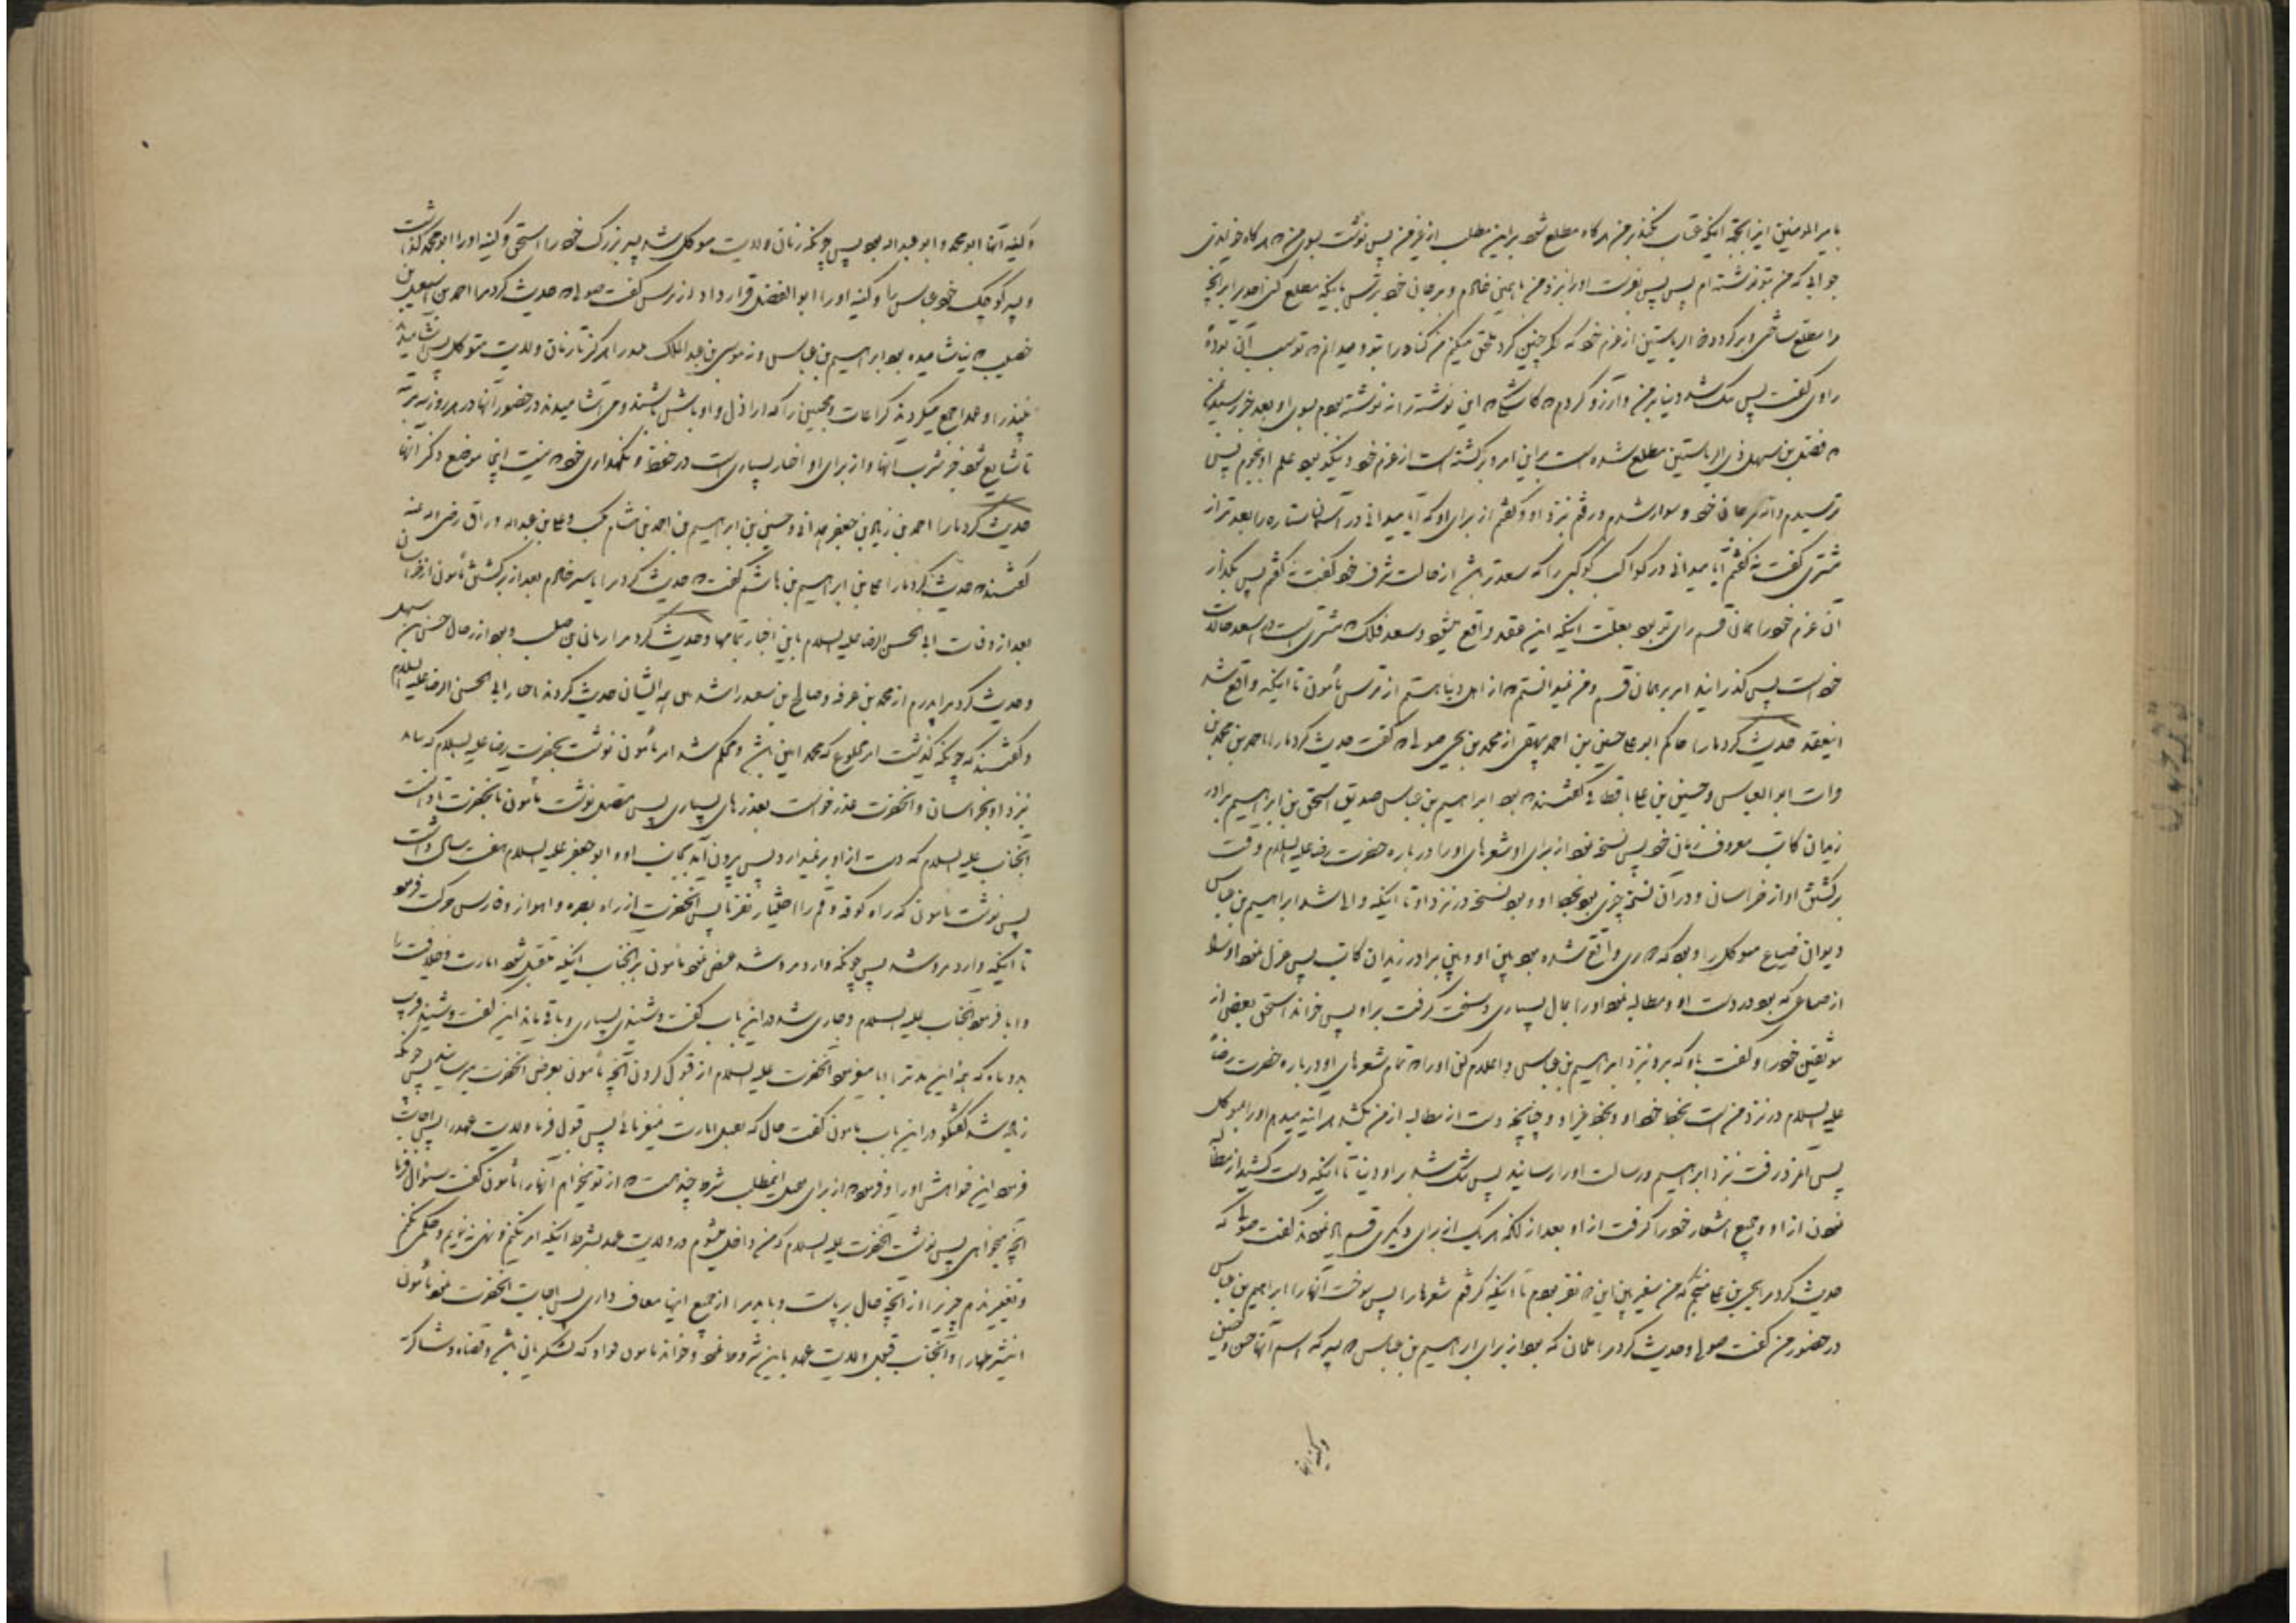 بامیر المومنین از آنجهة اینکه عتاب نکند بر من هرگاه مطلع شود بر این مطلب از غیر من پس نوشت بسوی من که هرگاه خواندی
جوابی که من بتو نوشته ام پس پس بفرست او را نزد من با همین خادم و بر جان خود بترس باینکه مطلع کنی احدی را بر آنچه
مرا مطلع ساختی و برگردد ذو الریاستین از عزم خود که اگر چنین کرد ملحق میکنم من گناه را بتو و میدانم که تو سبب آن بوده
راوی گفت پس تنک شد دنیا بر من و آرزو کردم که کاشکه این نوشته را ننوشته بودم بسوی او بعد خبر رسید بمن
که فضل بن سهل ذی الریاستین مطلع شده است بر این امر و برگشته است از عزم خود و نیکو بود علم او بنجوم پس
ترسیدم و الله بر جان خود و سوار شدم و رفتم نزد او و گفتم از برای او که آیا میدانی در آسمان ستاره را بعدتر از
مشتری گفت نه گفتم آیا میدانی در کواکب کوکبی را که سعدتر باشد از حالت شرف خود گفت نه گفتم پس بگذار
آن عزم خود را بهمان قسم رای تو بود بعلت اینکه این عقد واقع میشود و سعد فلک که مشتری است در اسعد حالات
خود است پس گذرانید امر بر همان قسم و من نمیدانستم که از اهل دنیا هستم از ترس مامون تا اینکه واقع شد
اینعقد حدیث کرد ما را حاکم ابو علی حسین بن احمد بیهقی از محمد بن یحیی صولی که گفت حدیث کرد ما را احمد بن محمد بن
فرات ابو العباس و حسین بن علی باقطائی گفتند که بود ابراهیم بن عباس صدیق اسحق بن ابراهیم برادر
زیدان کاتب معروف بزمن خود پس نسخه نمود از برای او شعرهای او را در باره حضرت رضا علیه السلام وقت
برگشتن او از خراسان و در آن نسخه چیزی بود بخط او و بود نسخه در نزد او تا اینکه والی شد ابراهیم بن عباس
دیوان ضیاع متوکل را و بود که دوری واقع شده بود بین او و بین برادر زیدان کاتب پس عزل نمود او را
از ضیاعی که بود در دست او و مطالبه نمود او را بمال بسیاری و سخت گرفت بر او پس خواند اسحق بعضی از
موثقین خود را و گفت باو که برو نزد ابراهیم بن عباس و اعلام کن او را که تمام شعرهای او در باره حضرت رضا
علیه السلام در نزد من است بخط خود او و بخط غیر او و چنانچه دست از مطالبه از من نکشد هر اینه میدهم او را بمتوکل
پس آنمرد رفت نزد ابراهیم و رسالت او را رسانید پس تنک شد بر او دنیا تا اینکه دست کشید از مطالبه
نمودن از او و جمیع اشعار خود را گرفت از او بعد از آنکه هر یک از برای دیگری قسم یاد نمودند گفت صولی که
حدیث کرد مرا یحیی بن علی منجم که من سفیر بین این دو نفر بودم تا اینکه گرفتم شعرها را پس سوخت آنها را ابراهیم بن عباس
در حضور من گفت صولی و حدیث کرد مرا احمد بن ملحان که بود از برای ابراهیم بن عباس دو پسر که اسم آنها حسن و حسین
و کنیه آنها
و کنیه آنها ابو محمد و ابو عبد الله بود پس چونکه زمان ولایت متوکل شد پسر بزرک خود را اسحق و کنیه او را ابو محمد گذاشت
و پسر کوچک خود عباس را و کنیه او را ابو الفضل قرار داد از ترس گفت صولی که حدیث کرد مرا احمد بن اسمعیل بن
خصیب که نیاشامیده بود ابراهیم بن عباس و نه موسی بن عبد الملک خمر را هرگز تا زمان ولایت متوکل پس آشامیدند
خمر را و عمدا جمع میکردند کراعات و مخنثین را که اراذل و اوباش باشند و می آشامیدند در حضور آنها در هر روز سه مرتبه
تا شایع شود خبر شرب آنها و از برای او اخبار بسیاری است در حفظ و نگهداری خود که نیست اینجا موضع ذکر آنها
حدیث کرد ما را احمد بن زیاد بن جعفر همدانی و حسین بن ابراهیم بن احمد بن هشام مکتب و علی بن عبد الله وراق رضی الله عنه
گفتند که حدیث کرد ما را علی بن ابراهیم بن هاشم گفت که حدیث کرد مرا یاسر خادم بعد از برگشتن مأمون از خراسان
بعد از وفات ابی الحسن الرضا علیه السلام باین اخبار تمامها و حدیث کرد مرا ریان بن صلت و بود از رجال حسن بن سهل
و حدیث کرد مرا پدرم از محمد بن عرفه و صالح بن سعید راشدی همه ایشان حدیث کردند باخبار ابی الحسن الرضا علیه السلام
و گفتند که چونکه گذشت امر مخلوع که محمد امین باشد و محکم شد امر مأمون نوشت بحضرت رضا علیه السلام که بیاید
نزد او بخراسان و آنحضرت عذر خواست بعذرهای بسیاری پس متصل نوشت مأمون بآنحضرت تا دانست
آنجناب علیه السلام که دست از او بر نمیدارد پس بیرون آمد بجانب او و ابو جعفر علیه السلام هفت سال داشت
پس نوشت مامون که راه کوفه و قم را اختیار نفرما پس آنحضرت از راه بصره و اهواز و فارس حرکت فرمود
تا اینکه وارد مرو شد پس چونکه وارد مرو شد عرض نمود مامون بر آنجناب اینکه متقبل شود امارت و خلافت را
و ابا فرمود آنجناب علیه السلام و جاری شد در این باب گفت و شنید بسیاری و باقی ماند این گفت و شنید قریب
بدو ماه که همه این مدت را ابا میفرمود آنحضرت علیه السلام از قبول کردن آنچه مأمون بعرض آنحضرت میرسانید پس چونکه
زیاد شد گفتگو در این باب مامون گفت حال که قبول امارت نمیفرمائی پس قبول فرما ولایت عهد را پس اجابت
فرمود این خواهش او را و فرمود که از برای عمل اینمطلب شروط چند هست که از تو میخواهم آنها را مأمون گفت سئوال فرما
آنچه میخواهی پس نوشت آنحضرت علیه السلام که من داخل میشوم در ولایت عهد بشرط اینکه امر نکنم و نهی ننمایم و حکمی نکنم
و تغییر ندهم چیزی را از آنچه حال برپاست و باید مرا از جمیع اینها معاف داری پس اجابت آنحضرت نمود مأمون
اینشرطها را و آنجناب قبول ولایت عهد باین شروط نمود و خواند مامون قواد که لشکریان باشند و قضاه و شاکریه